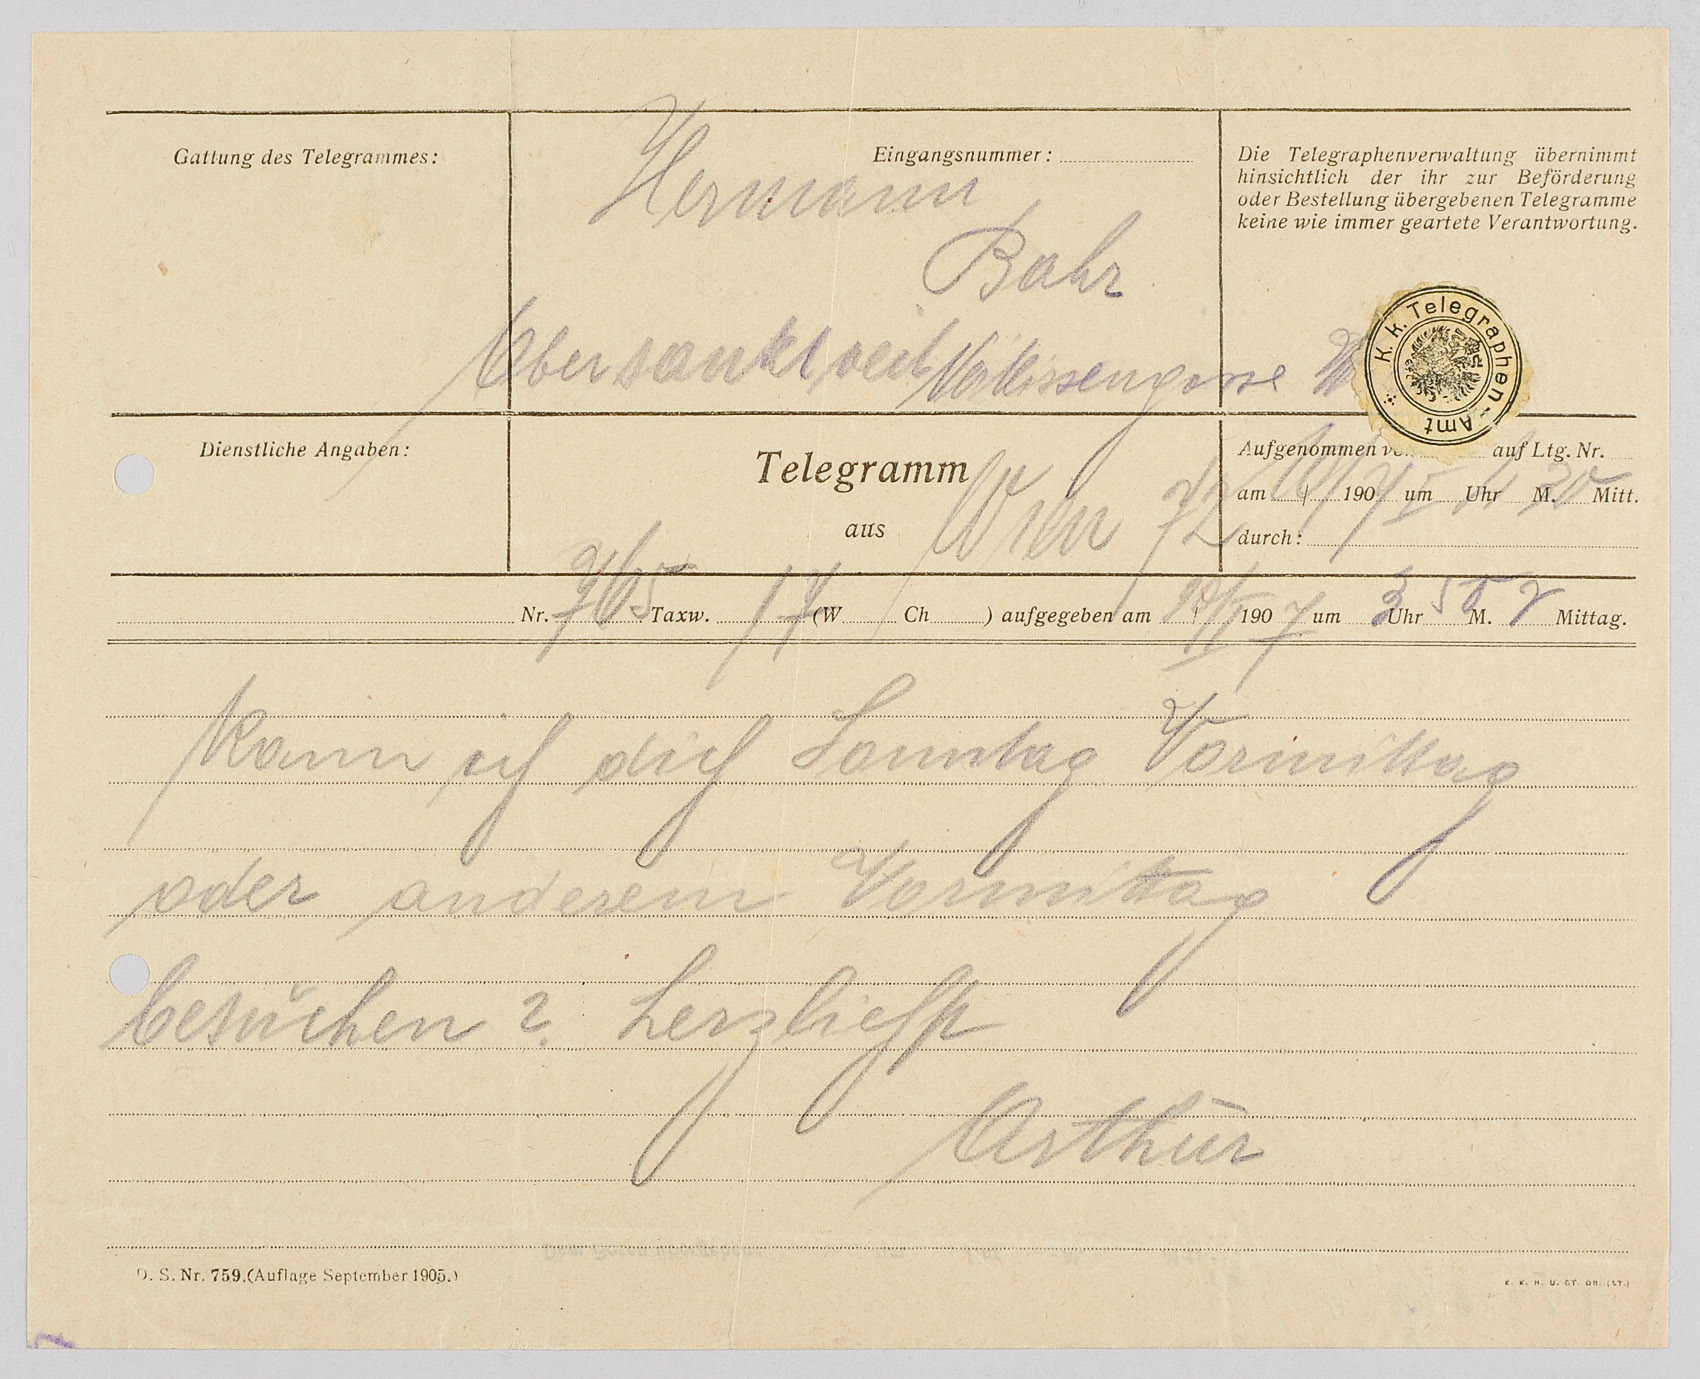 Gattung des Telegrammes:
Eingangsnummer:
Die Telegraphenverwaltung übernimmt
hinsichtlich der ihr zur Beförderung
oder Bestellung übergebenen Telegramme
keine wie immer geartete Verantwortung.
Hermann
Bahr
Obersanktveit Veitlissengasse
K. K. Telegraphen-Amt
Dienstliche Angaben:
Telegramm
aus Wien 72
Aufgenommen v auf Ltg. Nr.
am 190 7 um Uhr M. Mitt.
durch:
Nr. 765 Taxw. 17 (W Ch ) aufgegeben am 190 7 um 3 Uhr 50 M. Mittag.
Kann ich dich Sonntag Vormittag
oder anderem Vormittag
besuchen? herzlichst
Arthur
D. S. Nr. 759. (Auflage September 1905.)
K. K. H. U. ST. DR. (ST.)